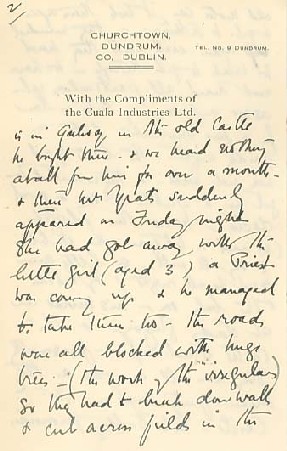 2/
CHURCHTOWN,
DUNDRUM,
CO, DUBLIN.
TEL. NO. 9 DUNDRUM.
With the Compliments of
the Cuala Industries Ltd.
is in Galway in the old Castle
he bought there - & we heard nothing
atall from him for over a month -
& then Mrs Yeats suddenly
appeared on Friday night
She had got away with the
little girl (aged 3) a Priest
was coming up & he managed
to take them too - the roads
were all blocked with huge
trees - (the work of the "irregulars)
So they had to break down walls
& cut across fields in the